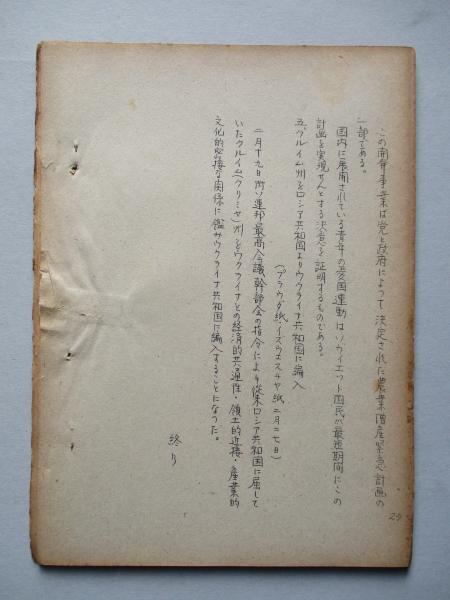 この開発事業は党と政府によって決定された農業増産緊急計画の
一部である。
国内に展開されている青年の愛国運動はソヴイエット国民が最短期間にこの
計画を実現せんとする決意を証明するものである。
五、クルイム州をロシア共和国よりウクライナ共和国に編入
(プラウダ紙、イズヴェスチヤ紙 二月二七日)
二月十九日附ソ連邦最高会議幹部会の指令により従来ロシア共和国に属して
いたクルイム(クリミヤ)州をウクライナとの経済的共通性・領土的近接・産業的
文化的密接な関係に鑑みウクライナ共和国に編入することになった。
終り
29